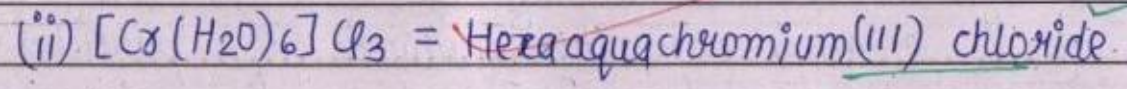 (ii) [Cr(H2O)6] Cl3 = Hexaaquachromium(III) chloride.